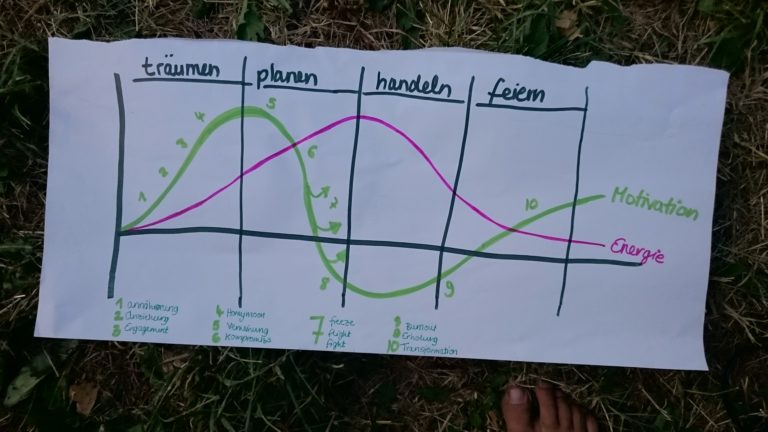 träumen
planen
handeln
feiern
1
2
3
4
5
6
7
8
9
10
Motivation
Energie
1 annäherung
2 Anziehung
3 Engagement
4 Honeymoon
5
6 Kompromiss
7
freeze
flight
fight
8 Burnout
9 Erholung
10 Transformation